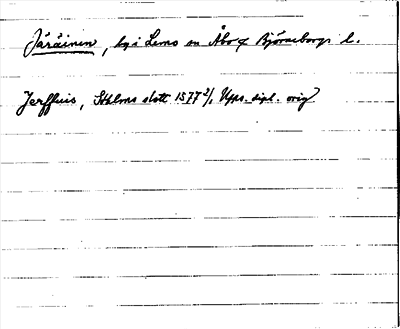 Järäinen, by i Lemo sn Åbo o. Björneborgs l.
Jerffluis, Sthlms slott 1577 2/1 Upps. dipl. orig